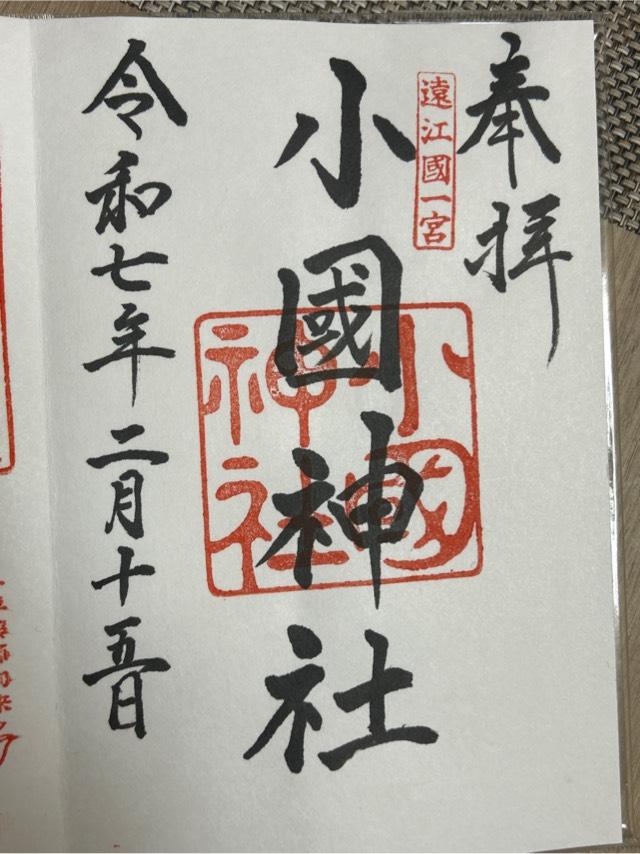 奉拝
遠江國一宮
小國神社
小國
神社
令和七年二月十五日